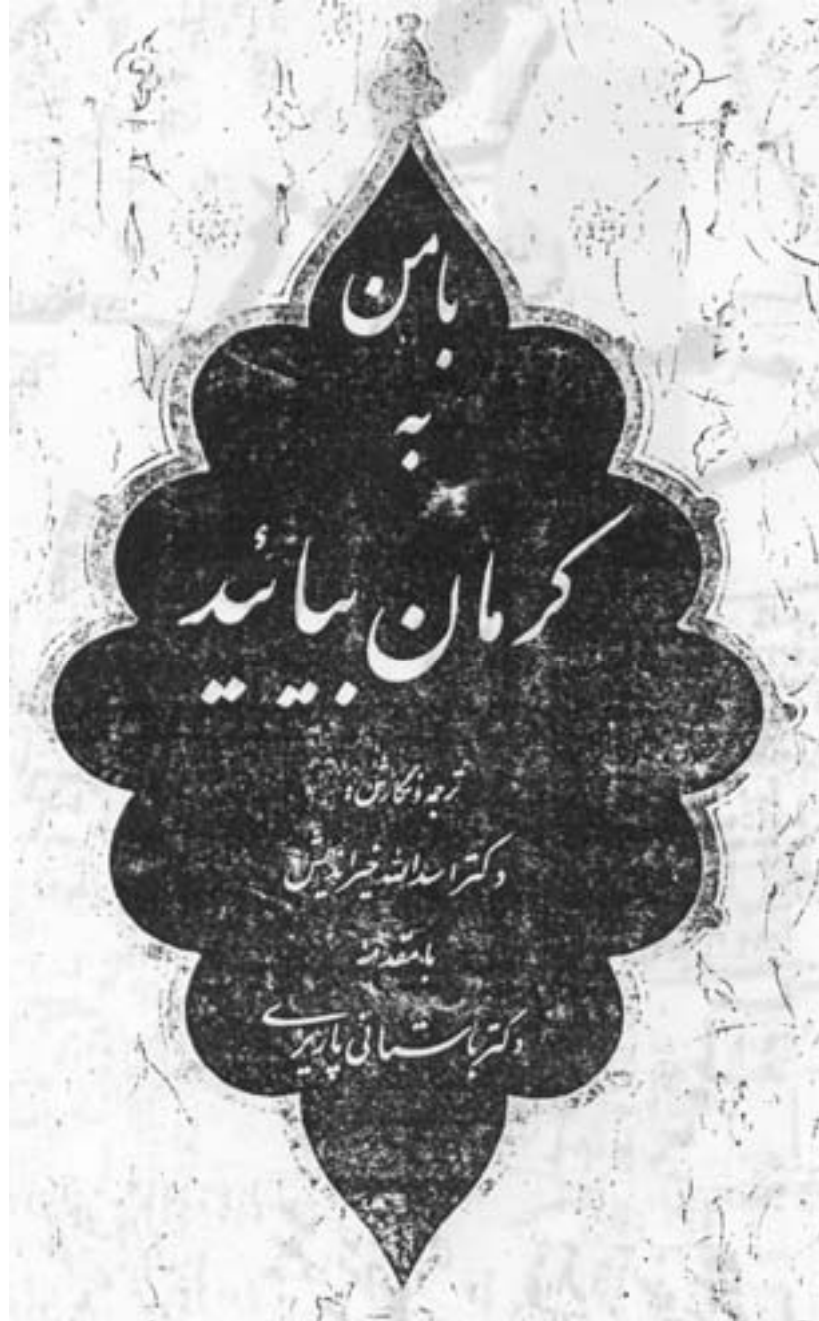 با من
به
کرمان بیائید
ترجمه و نگارش:
دکتر اسدالله خیراندیش
با مقدمه
دکتر باستانی پاریزی